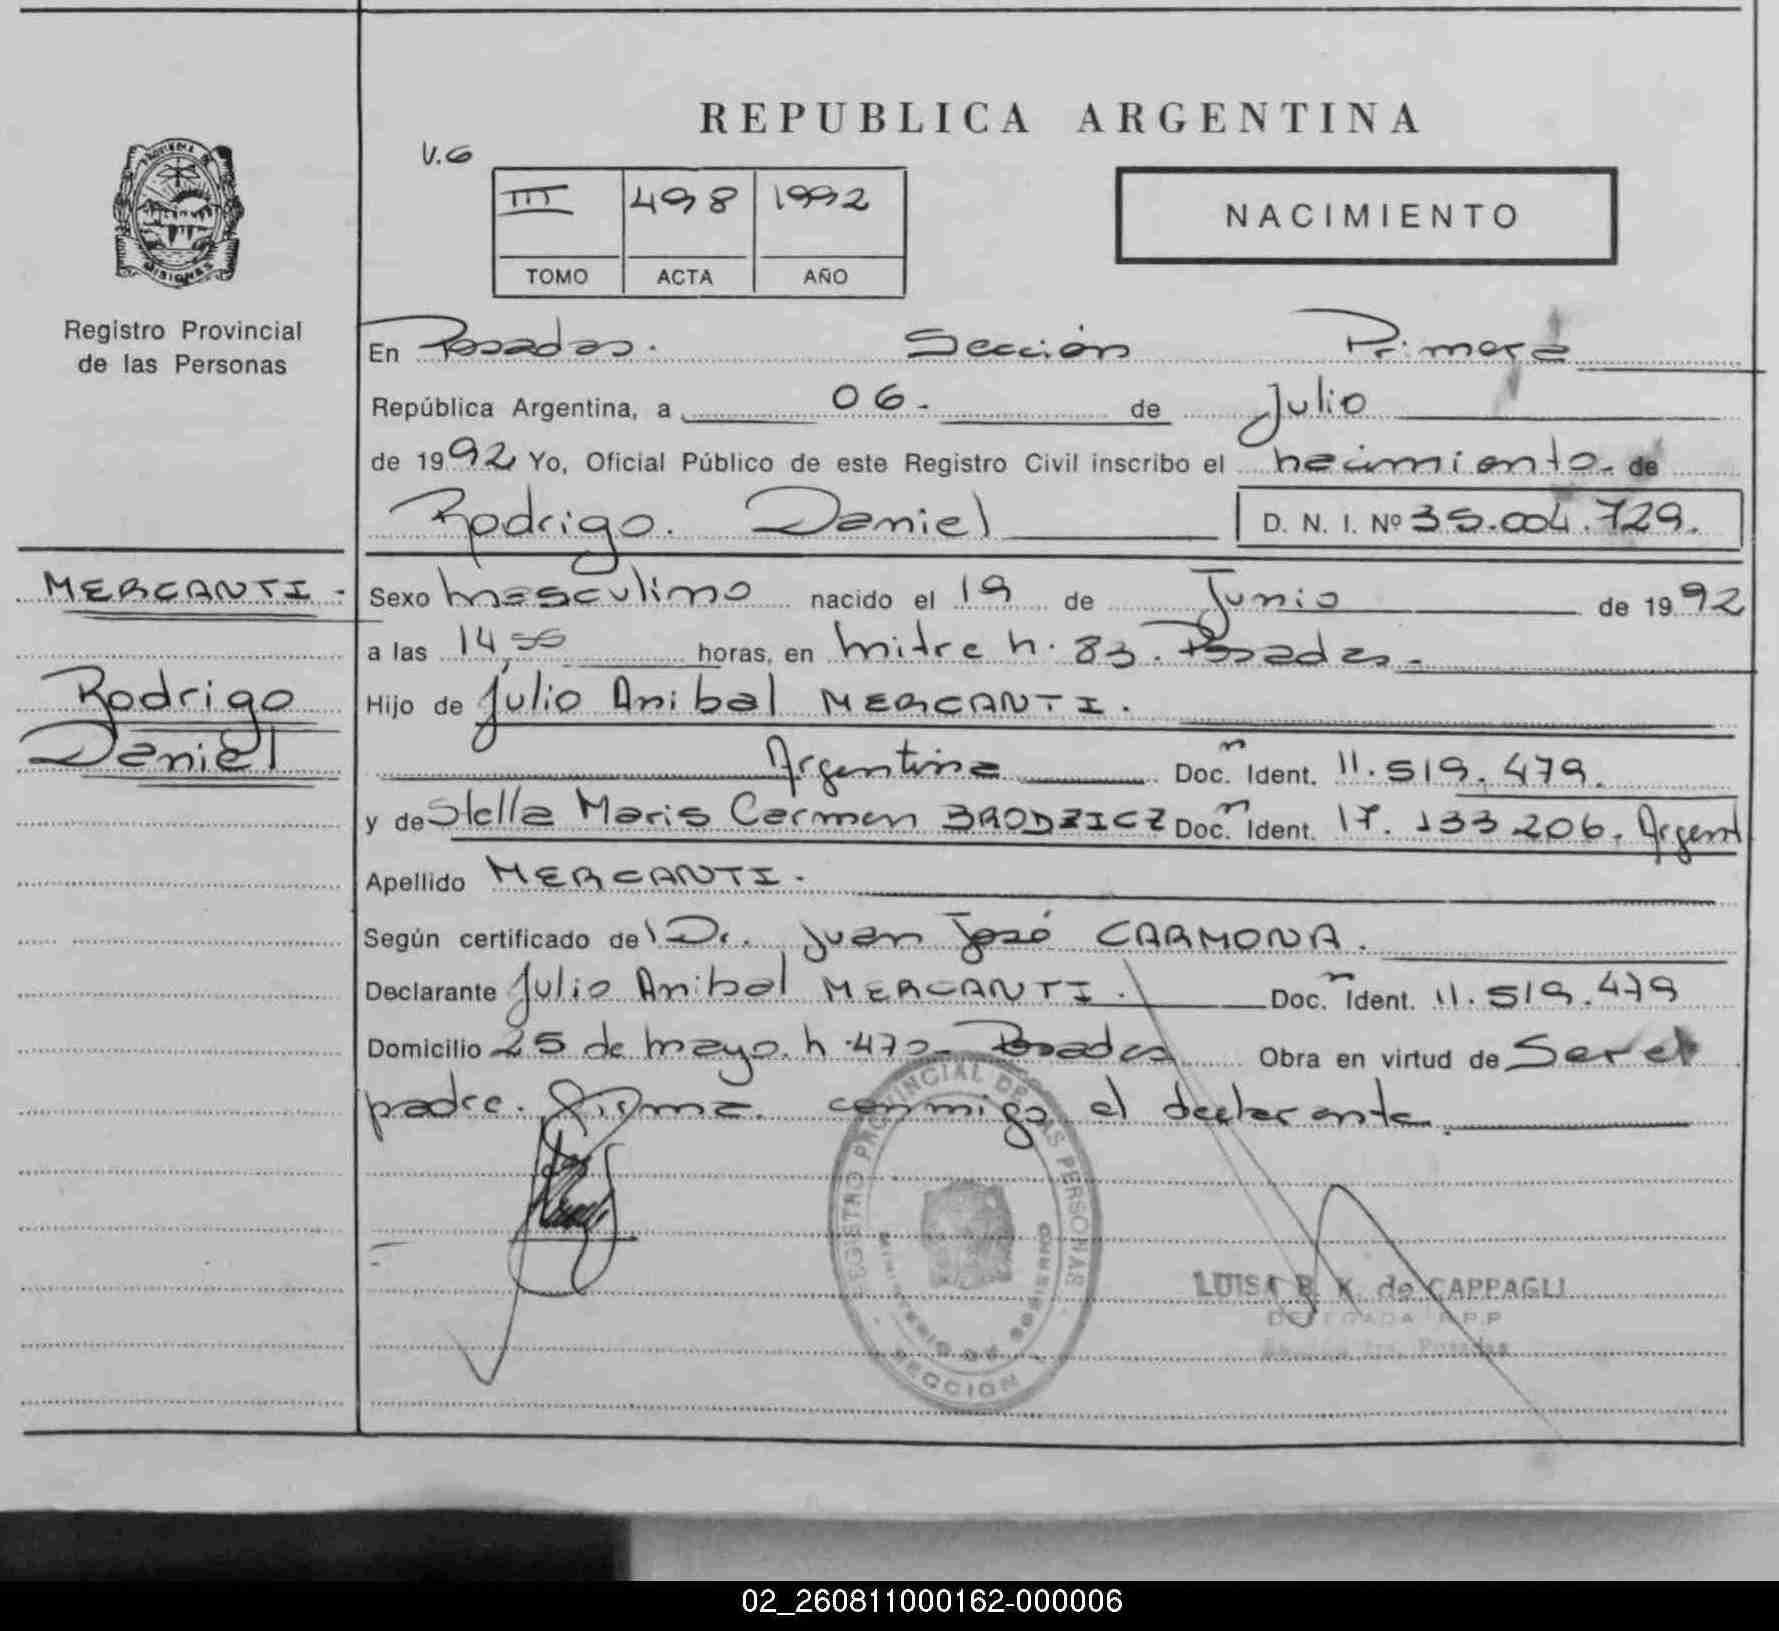 REPUBLICA ARGENTINA
V.G
III 498 1992
TOMO ACTA AÑO
NACIMIENTO
PROVINCIA DE
MISIONES
Registro Provincial
de las Personas
En Posadas. Sección Primera
República Argentina, a 06. de Julio
de 1992 Yo, Oficial Público de este Registro Civil inscribo el nacimiento de
Rodrigo Daniel D. N. I. Nº 35.004.729.
MERCANTI.
Rodrigo
Daniel
Sexo masculino nacido el 19 de Junio de 1992
a las 14, horas, en Mitre n. 83. Posadas.
Hijo de Julio Anibal MERCANTI.
Argentina Doc. Ident. 11.519.479.
y de Stella Maris Carmen BRODZICZ Doc. Ident. 17.133 206. Argent
Apellido MERCANTI.
Según certificado del Dr. Juan José CARMONA.
Declarante Julio Anibal MERCANTI. Doc. Ident. 11.519.479
Domicilio 25 de mayo. n. 470 Posadas Obra en virtud de Ser el
padre. Firma conmigo el declarante.
REGISTRO PROVINCIAL DE LAS PERSONAS
MINISTERIO DE GOBIERNO
LUISA B. K. de CAPPAGLI
DELEGADA R.P.P
Posadas
02_260811000162-000006